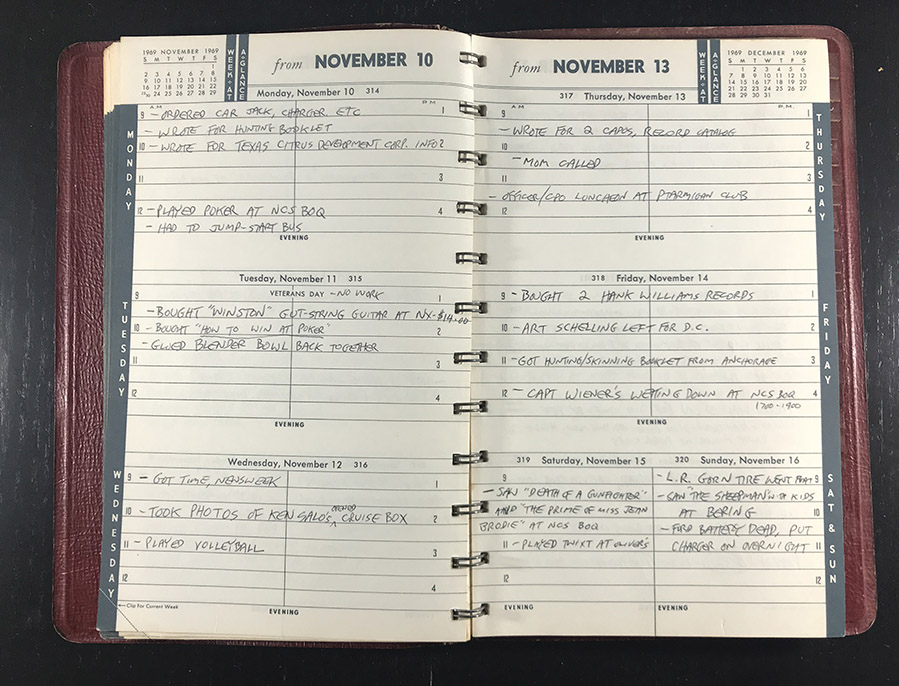 1969 NOVEMBER 1969
S M T W T F S
1
2 3 4 5 6 7 8
9 10 11 12 13 14 15
16 17 18 19 20 21 22
23/30 24 25 26 27 28 29
WEEK-AT
A-GLANCE
from NOVEMBER 10
Monday, November 10 314
MONDAY
A.M. P.M.
9 - ORDERED CAR JACK, CHARGER, ETC 1
- WROTE FOR HUNTING BOOKLET
10 - WROTE FOR TEXAS CITRUS DEVELOPMENT CORP. INFO 2
11 3
12 - PLAYED POKER AT NCS BOQ 4
- HAD TO JUMP-START BUS
EVENING
Tuesday, November 11 315
TUESDAY
9 VETERANS DAY - NO WORK 1
- BOUGHT "WINSTON" GUT-STRING GUITAR AT NX - $14.00
10 - BOUGHT "HOW TO WIN AT POKER" 2
- GLUED BLENDER BOWL BACK TOGETHER
11 3
12 4
EVENING
Wednesday, November 12 316
WEDNESDAY
9 - GOT TIME, NEWSWEEK 1
10 - TOOK PHOTOS OF KEN SALO'S CRUISE BOX 2
11 - PLAYED VOLLEYBALL 3
12 4
←Clip For Current Week
EVENING
from NOVEMBER 13
WEEK-AT
A-GLANCE
1969 DECEMBER 1969
S M T W T F S
1 2 3 4 5 6
7 8 9 10 11 12 13
14 15 16 17 18 19 20
21 22 23 24 25 26 27
28 29 30 31
317 Thursday, November 13
THURSDAY
A.M. P.M.
9 1
- WROTE FOR 2 CAPOS, RECORD CATALOG
10 2
- MOM CALLED
11 3
- OFFICER/CPO LUNCHEON AT PTARMIGAN CLUB
12 4
EVENING
318 Friday, November 14
FRIDAY
9 - BOUGHT 2 HANK WILLIAMS RECORDS 1
10 - ART SCHELLING LEFT FOR D.C. 2
11 - GOT HUNTING/SKINNING BOOKLET FROM ANCHORAGE 3
12 - CAPT WIENER'S WETTING DOWN AT NCS BOQ 4
1700-1900
EVENING
319 Saturday, November 15
9
- SAW "DEATH OF A GUNFIGHTER"
10 AND "THE PRIME OF MISS JEAN
BRODIE" AT NCS BOQ
11 - PLAYED TWIXT AT OLIVER'S
12
EVENING
320 Sunday, November 16
SAT & SUN
- L.R. GORN TIRE WENT FLAT 9
- SAW "THE SHEEPMAN" WITH KIDS
AT BERING 10
- FORD BATTERY DEAD, PUT
CHARGER ON OVERNIGHT 11
12
EVENING